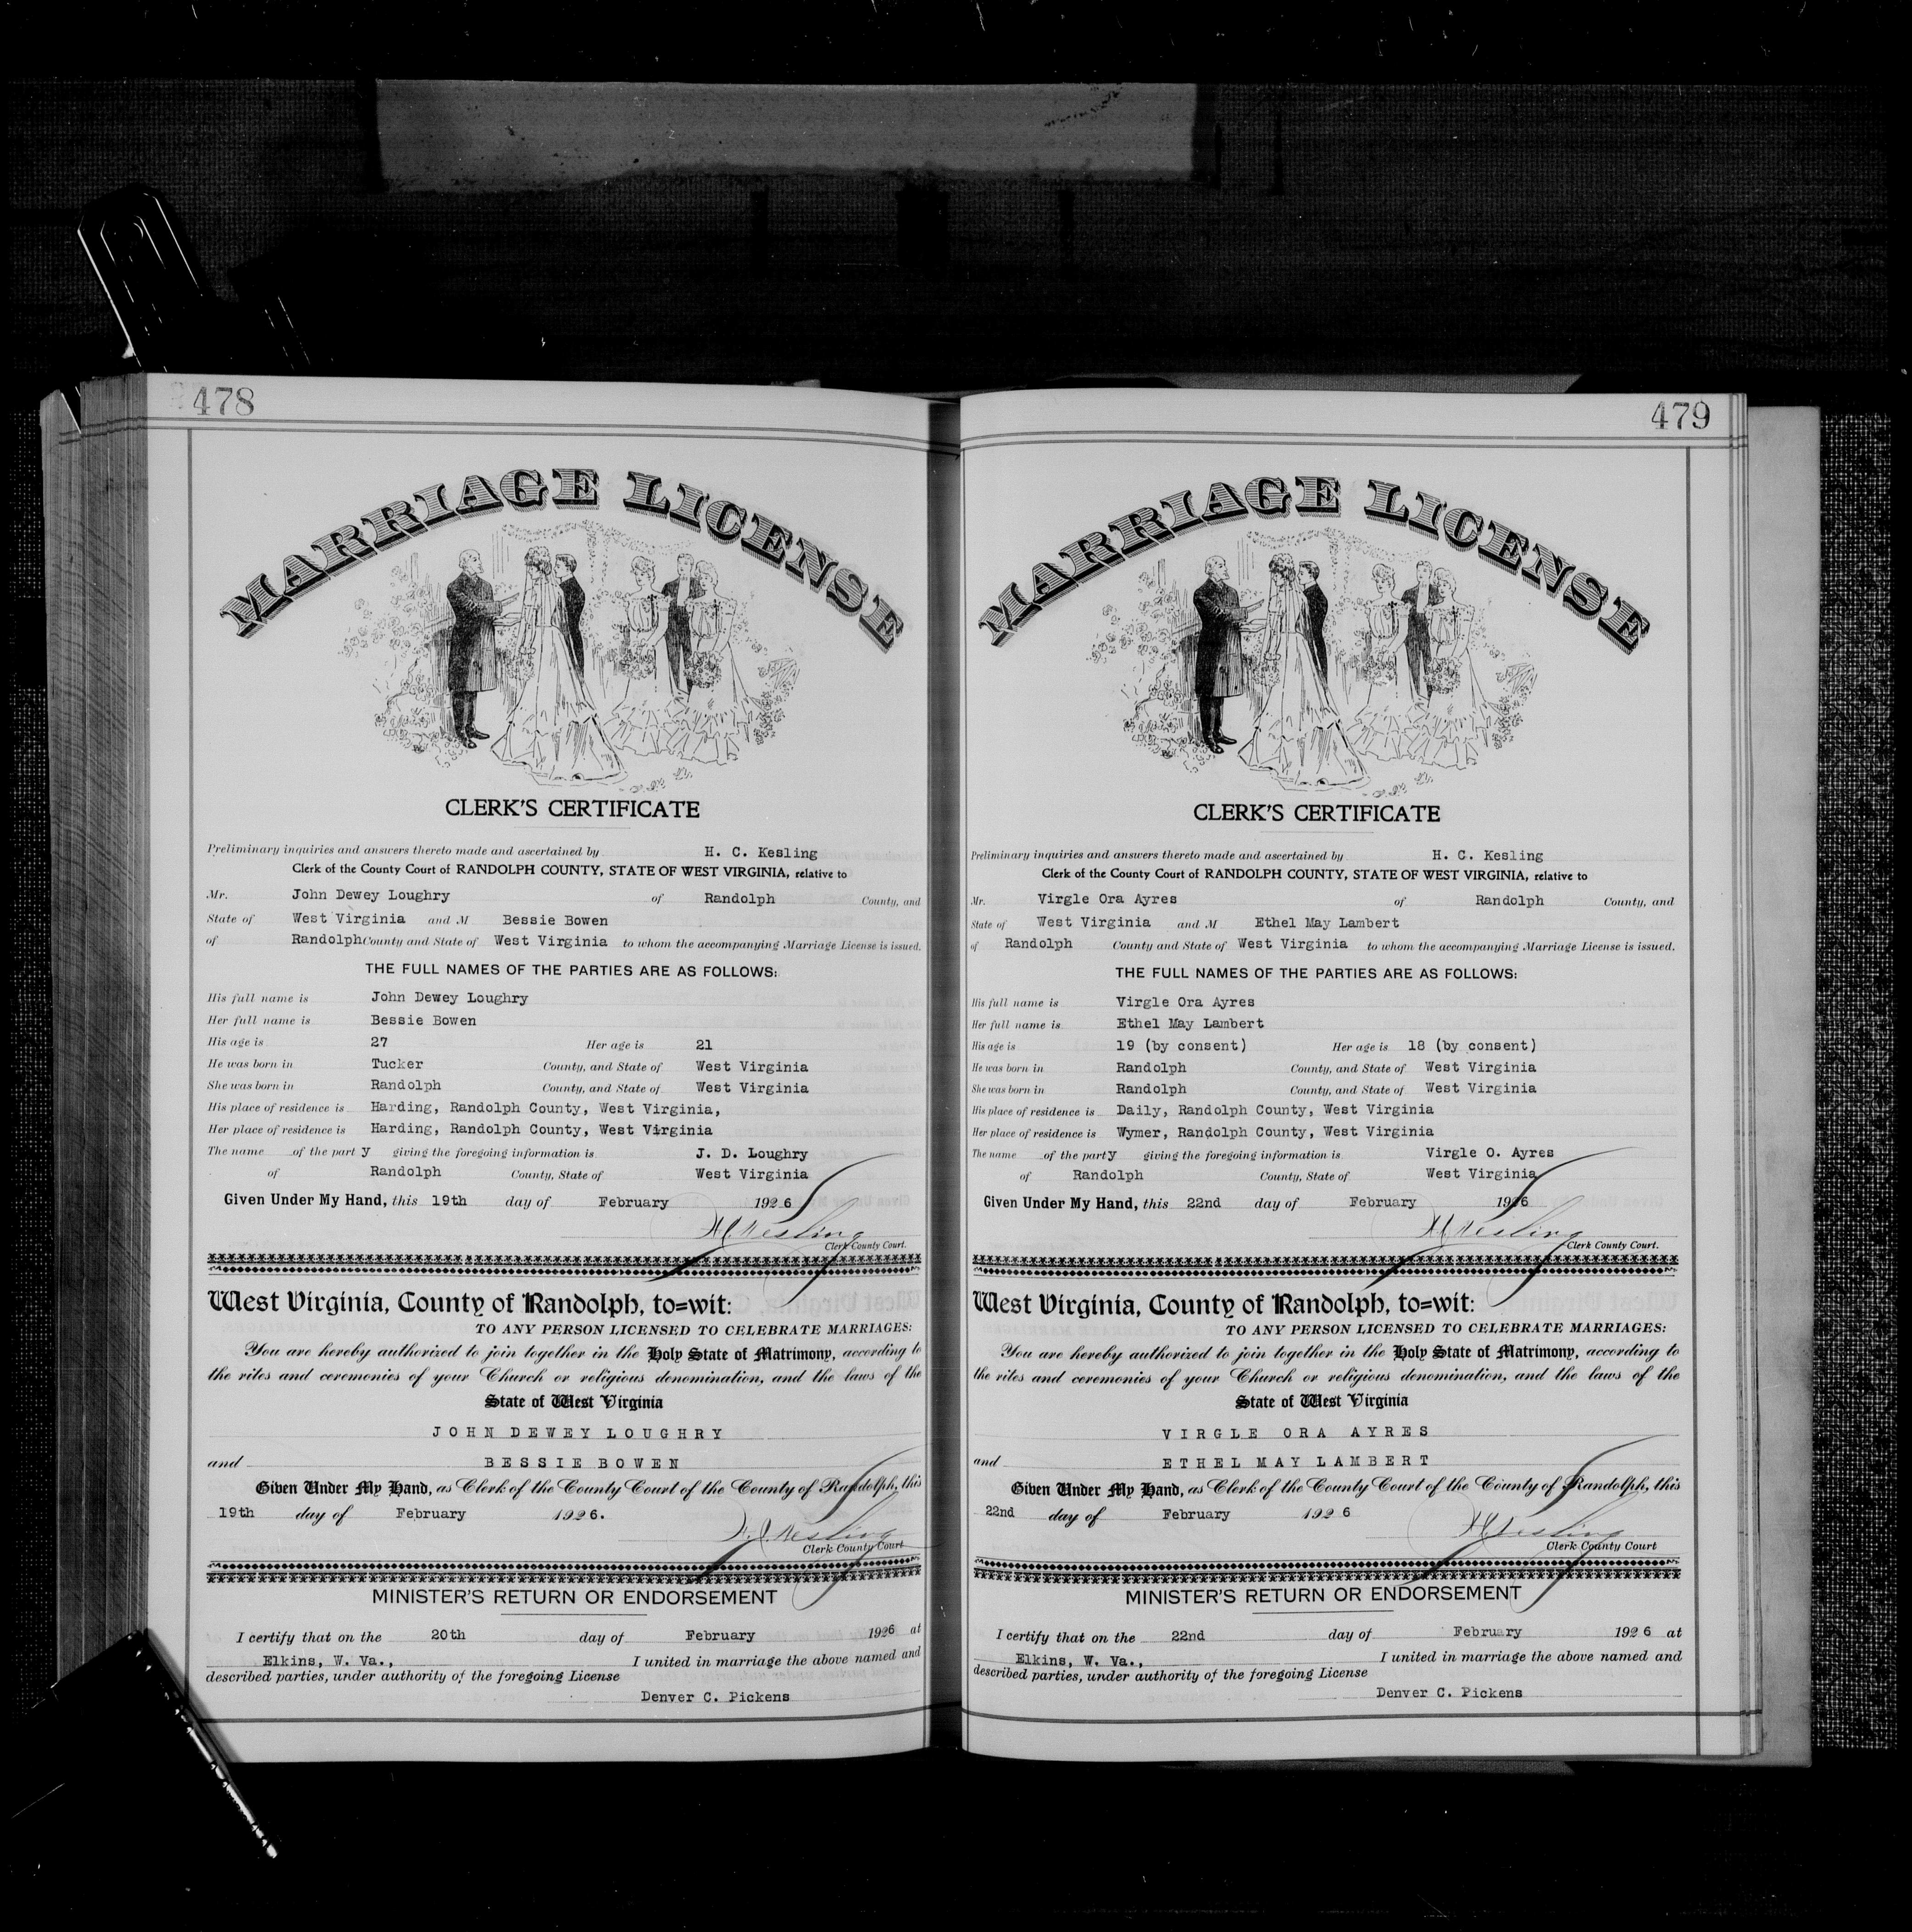 478
MARRIAGE LICENSE
CLERK'S CERTIFICATE
Preliminary inquiries and answers thereto made and ascertained by H. C. Kesling
Clerk of the County Court of RANDOLPH COUNTY, STATE OF WEST VIRGINIA, relative to
Mr. John Dewey Loughry of Randolph County, and
State of West Virginia and M Bessie Bowen
of Randolph County and State of West Virginia to whom the accompanying Marriage License is issued.
THE FULL NAMES OF THE PARTIES ARE AS FOLLOWS:
His full name is John Dewey Loughry
Her full name is Bessie Bowen
His age is 27 Her age is 21
He was born in Tucker County, and State of West Virginia
She was born in Randolph County, and State of West Virginia
His place of residence is Harding, Randolph County, West Virginia,
Her place of residence is Harding, Randolph County, West Virginia
The name of the part y giving the foregoing information is J. D. Loughry
of Randolph County, State of West Virginia
Given Under My Hand, this 19th day of February 1926
H C Kesling
Clerk County Court.
West Virginia, County of Randolph, to=wit:
TO ANY PERSON LICENSED TO CELEBRATE MARRIAGES:
You are hereby authorized to join together in the Holy State of Matrimony, according to
the rites and ceremonies of your Church or religious denomination, and the laws of the
State of West Virginia
JOHN DEWEY LOUGHRY
and BESSIE BOWEN
Given Under My Hand, as Clerk of the County Court of the County of Randolph, this
19th day of February 1926.
H C Kesling
Clerk County Court
MINISTER'S RETURN OR ENDORSEMENT
I certify that on the 20th day of February 1926 at
Elkins, W. Va., I united in marriage the above named and
described parties, under authority of the foregoing License
Denver C. Pickens
479
MARRIAGE LICENSE
CLERK'S CERTIFICATE
Preliminary inquiries and answers thereto made and ascertained by H. C. Kesling
Clerk of the County Court of RANDOLPH COUNTY, STATE OF WEST VIRGINIA, relative to
Mr. Virgle Ora Ayres of Randolph County, and
State of West Virginia and M Ethel May Lambert
of Randolph County and State of West Virginia to whom the accompanying Marriage License is issued.
THE FULL NAMES OF THE PARTIES ARE AS FOLLOWS:
His full name is Virgle Ora Ayres
Her full name is Ethel May Lambert
His age is 19 (by consent) Her age is 18 (by consent)
He was born in Randolph County, and State of West Virginia
She was born in Randolph County, and State of West Virginia
His place of residence is Daily, Randolph County, West Virginia
Her place of residence is Wymer, Randolph County, West Virginia
The name of the party giving the foregoing information is Virgle O. Ayres
of Randolph County, State of West Virginia
Given Under My Hand, this 22nd day of February 1926
H C Kesling
Clerk County Court.
West Virginia, County of Randolph, to=wit:
TO ANY PERSON LICENSED TO CELEBRATE MARRIAGES:
You are hereby authorized to join together in the Holy State of Matrimony, according to
the rites and ceremonies of your Church or religious denomination, and the laws of the
State of West Virginia
VIRGLE ORA AYRES
and ETHEL MAY LAMBERT
Given Under My Hand, as Clerk of the County Court of the County of Randolph, this
22nd day of February 1926
H C Kesling
Clerk County Court
MINISTER'S RETURN OR ENDORSEMENT
I certify that on the 22nd day of February 1926 at
Elkins, W. Va., I united in marriage the above named and
described parties, under authority of the foregoing License
Denver C. Pickens